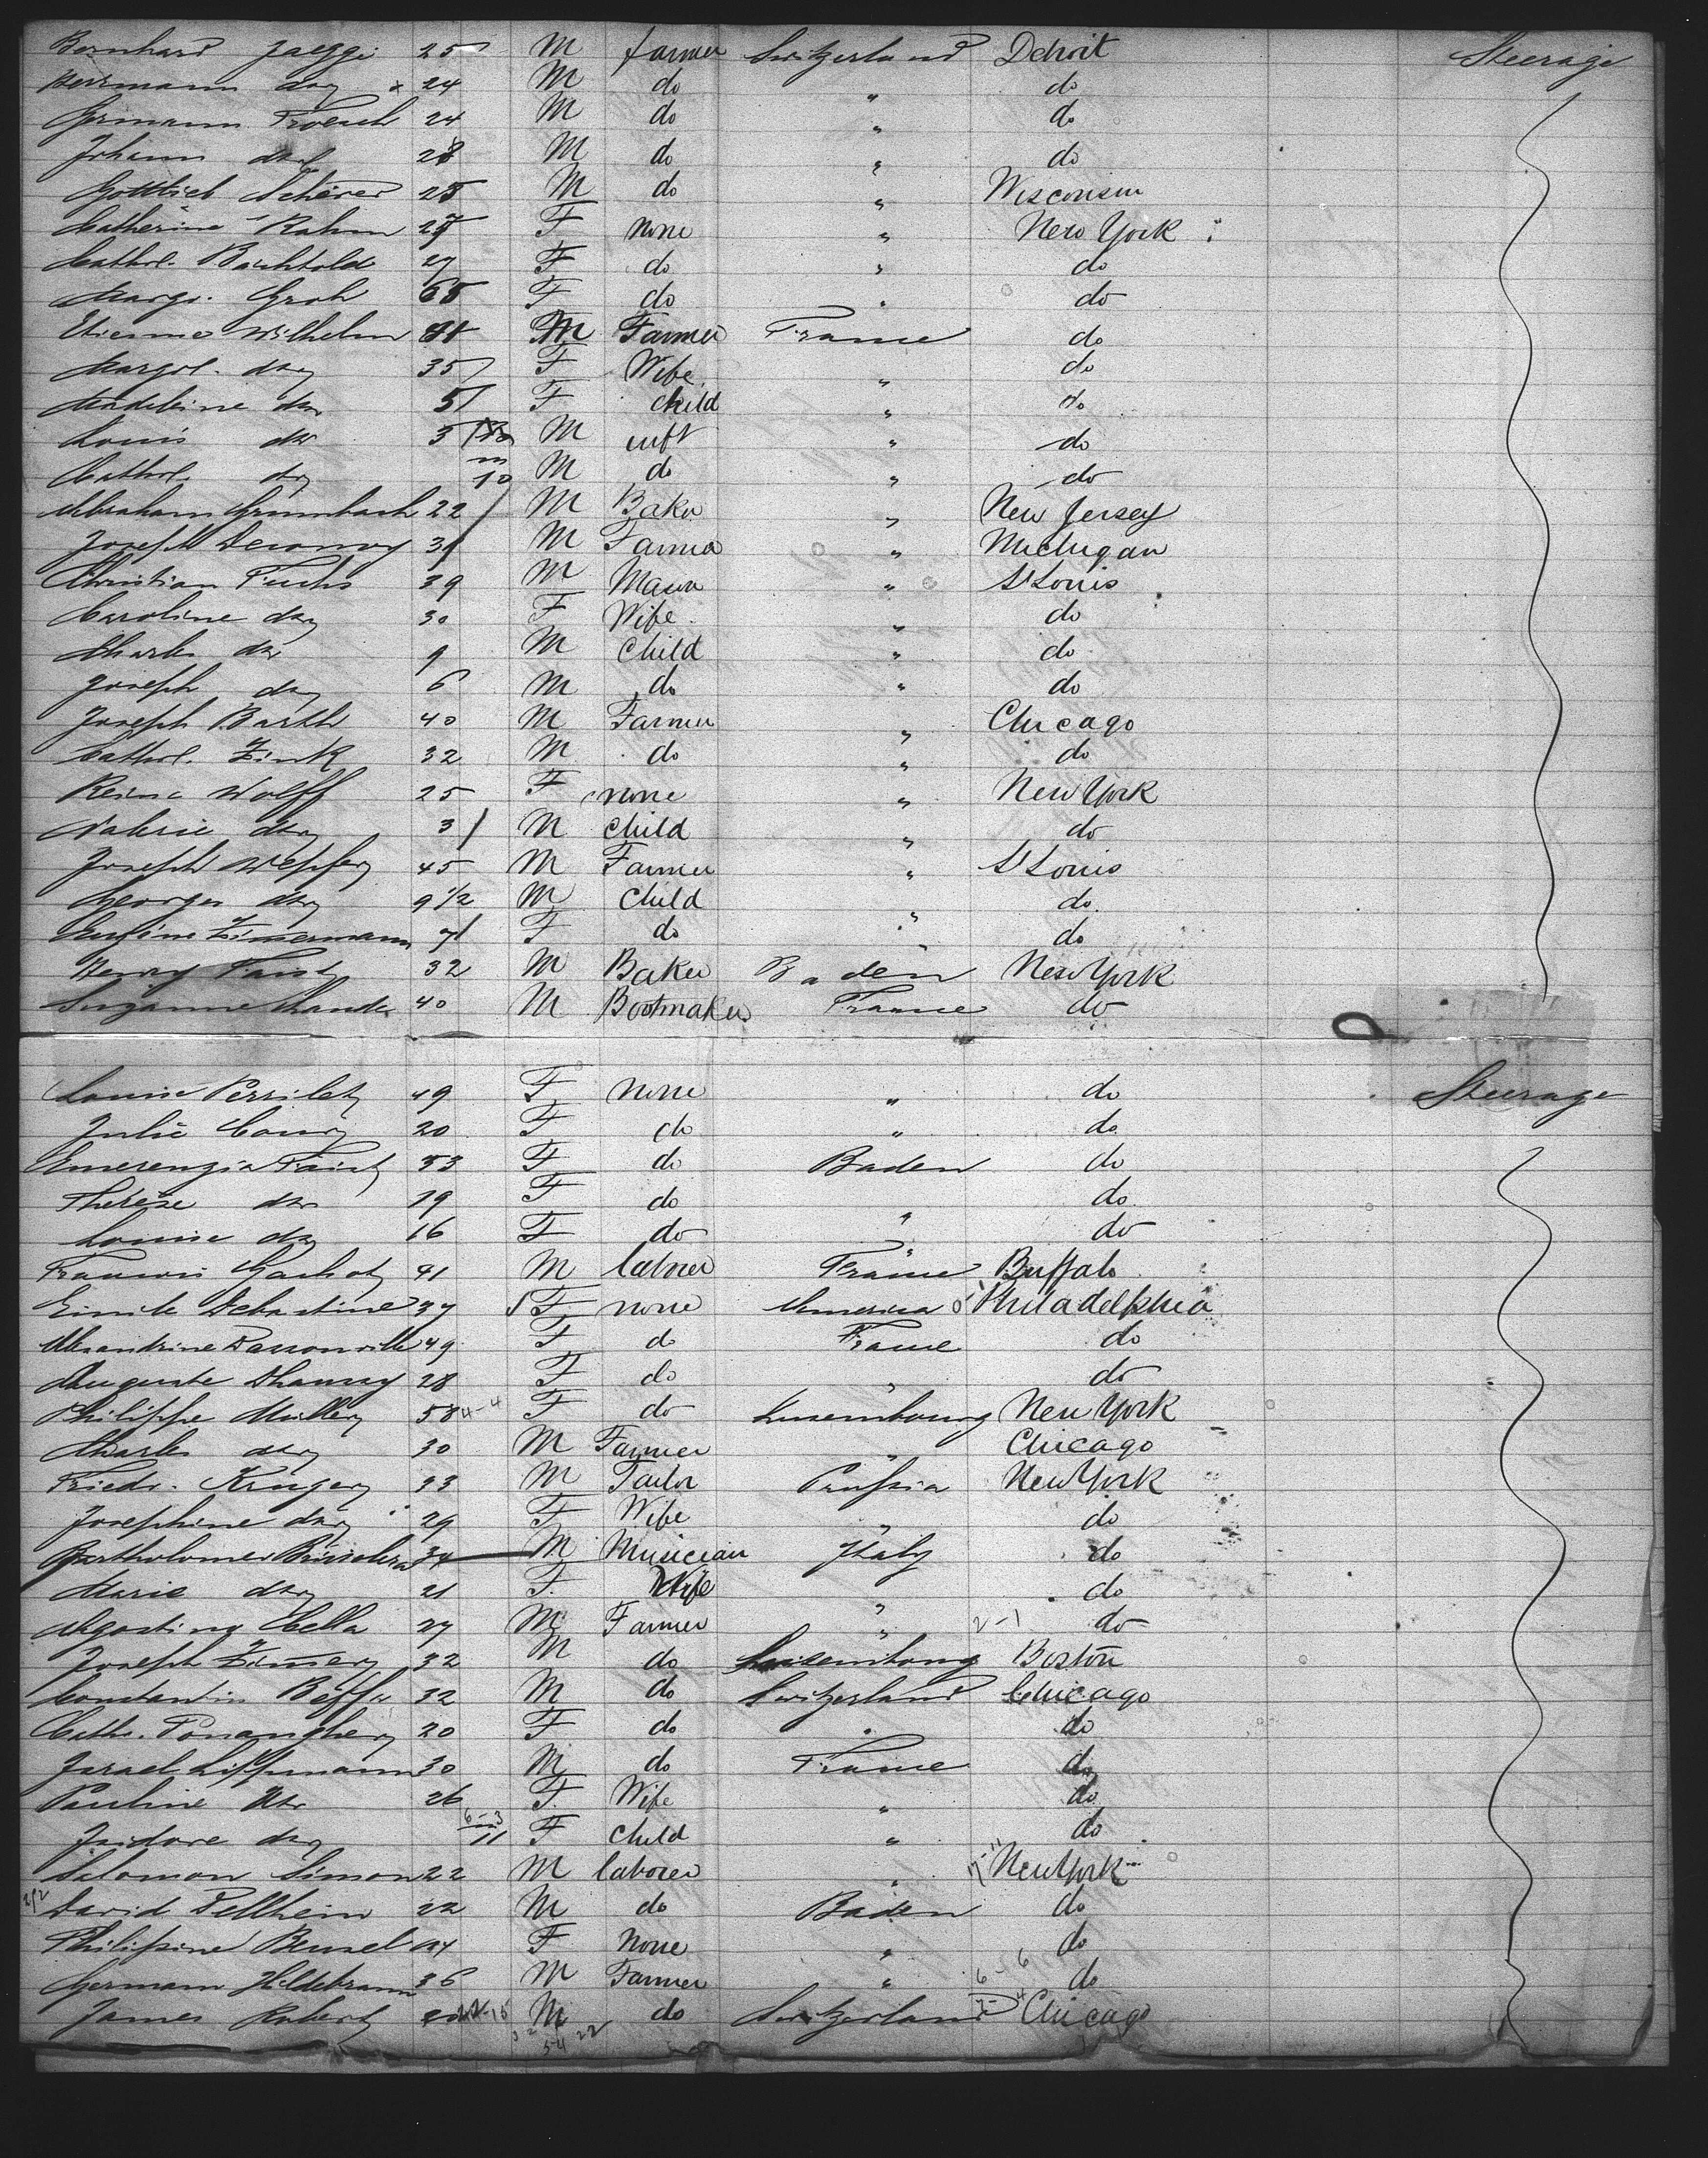 Bernhard Jaeggi 25 M farmer Switzerland Detroit Steerage
Herrmann do 24 M do " do
Germann Troesch 24 M do " do
Johann do 28 M do " do
Gottlieb Scherer 25 M do " Wisconsin
Catherine Rahm 29 F none " New York
Cathrl. Bachtold 27 F do " do
Margr. Groh 65 F do " do
Etienne Wilhelm 41 M Farmer France do
Margrl. do 35 F Wife " do
Madeleine do 5 F child " do
Louis do 3 M inft " do
Cathrl. do m 10 M do " do
Abraham Grumbach 22 M Baker " New Jersey
Joseph 31 M Farmer " Michigan
Christian Fuchs 39 M Mason " St Louis
Caroline do 30 F Wife " do
Charles do 9 M Child " do
Joseph do 6 M do " do
Joseph Barth 40 M Farmer " Chicago
Cathrl. Zink 32 M do " do
Reine Wolff 25 F none " New York
Valerie do 3 M child " do
Joseph Wepfer 45 M Farmer " St Louis
Georges do 9 1/2 M Child " do
Zimermann 71 F do " do
Henry Faist 32 M Baker Baden New York
Suzanne 40 M Bootmaker France do
Louise Perrilet 49 F none " do Steerage
Julie 20 F do " do
Emerenzia Faist 53 F do Baden do
Therese do 19 F do " do
Louise do 16 F do " do
Francois Gachot 41 M laborer France Buffalo
Emile Debastine 37 F none America Philadelphia
Alexandrine 49 F do France do
Auguste 28 F do " do
Philippe Muller 58 4-4 F do Luxembourg New York
Charles do 30 M Farmer " Chicago
Friedr. Kruger 33 M Tailor Prussia New York
Josephine do 29 F Wife " do
Bartholomeo 34 M Musician Italy do
Marie do 21 F Wife " do
Agostino Cella 27 M Farmer " 2-1 do
Joseph Zimer 32 M do Luxembourg Boston
Constantin Beffa 32 M do Switzerland Chicago
Cath. 20 F do " do
Israel Lippmann 30 M do France do
Pauline do 26 F Wife " do
Isidore do 6-3 11 F Child " do
Salomon Simon 22 M laborer " New York
David Pellheim 22 M do Baden do
Philipine Bensel 24 F None " do
Germann Hildebrann 36 M Farmer " 6-6 do
James Robert M do Switzerland Chicago